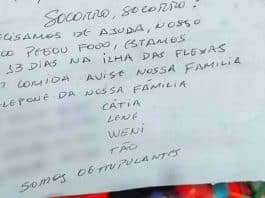 SOCORRO, SOCORRO!
CISAMOS DE AJUDA, NOSSO
CO PEGOU FOGO, ESTAMOS
13 DIAS NA ILHA DAS FLEXAS
COMIDA AVISE NOSSA FAMILIA
LEPONE DA NOSSA FÁMILIA
CÁTIA
LENE
WENI
TÃO
SOMOS OS TRIPULANTES